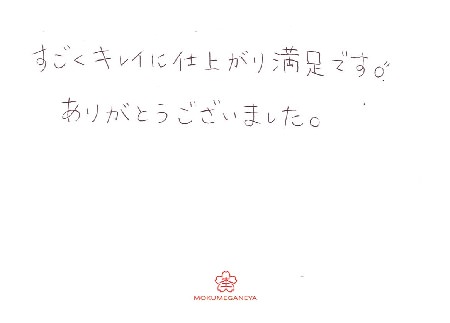 すごくキレイに仕上がり満足です。
ありがとうございました。
MOKUMEGANEYA